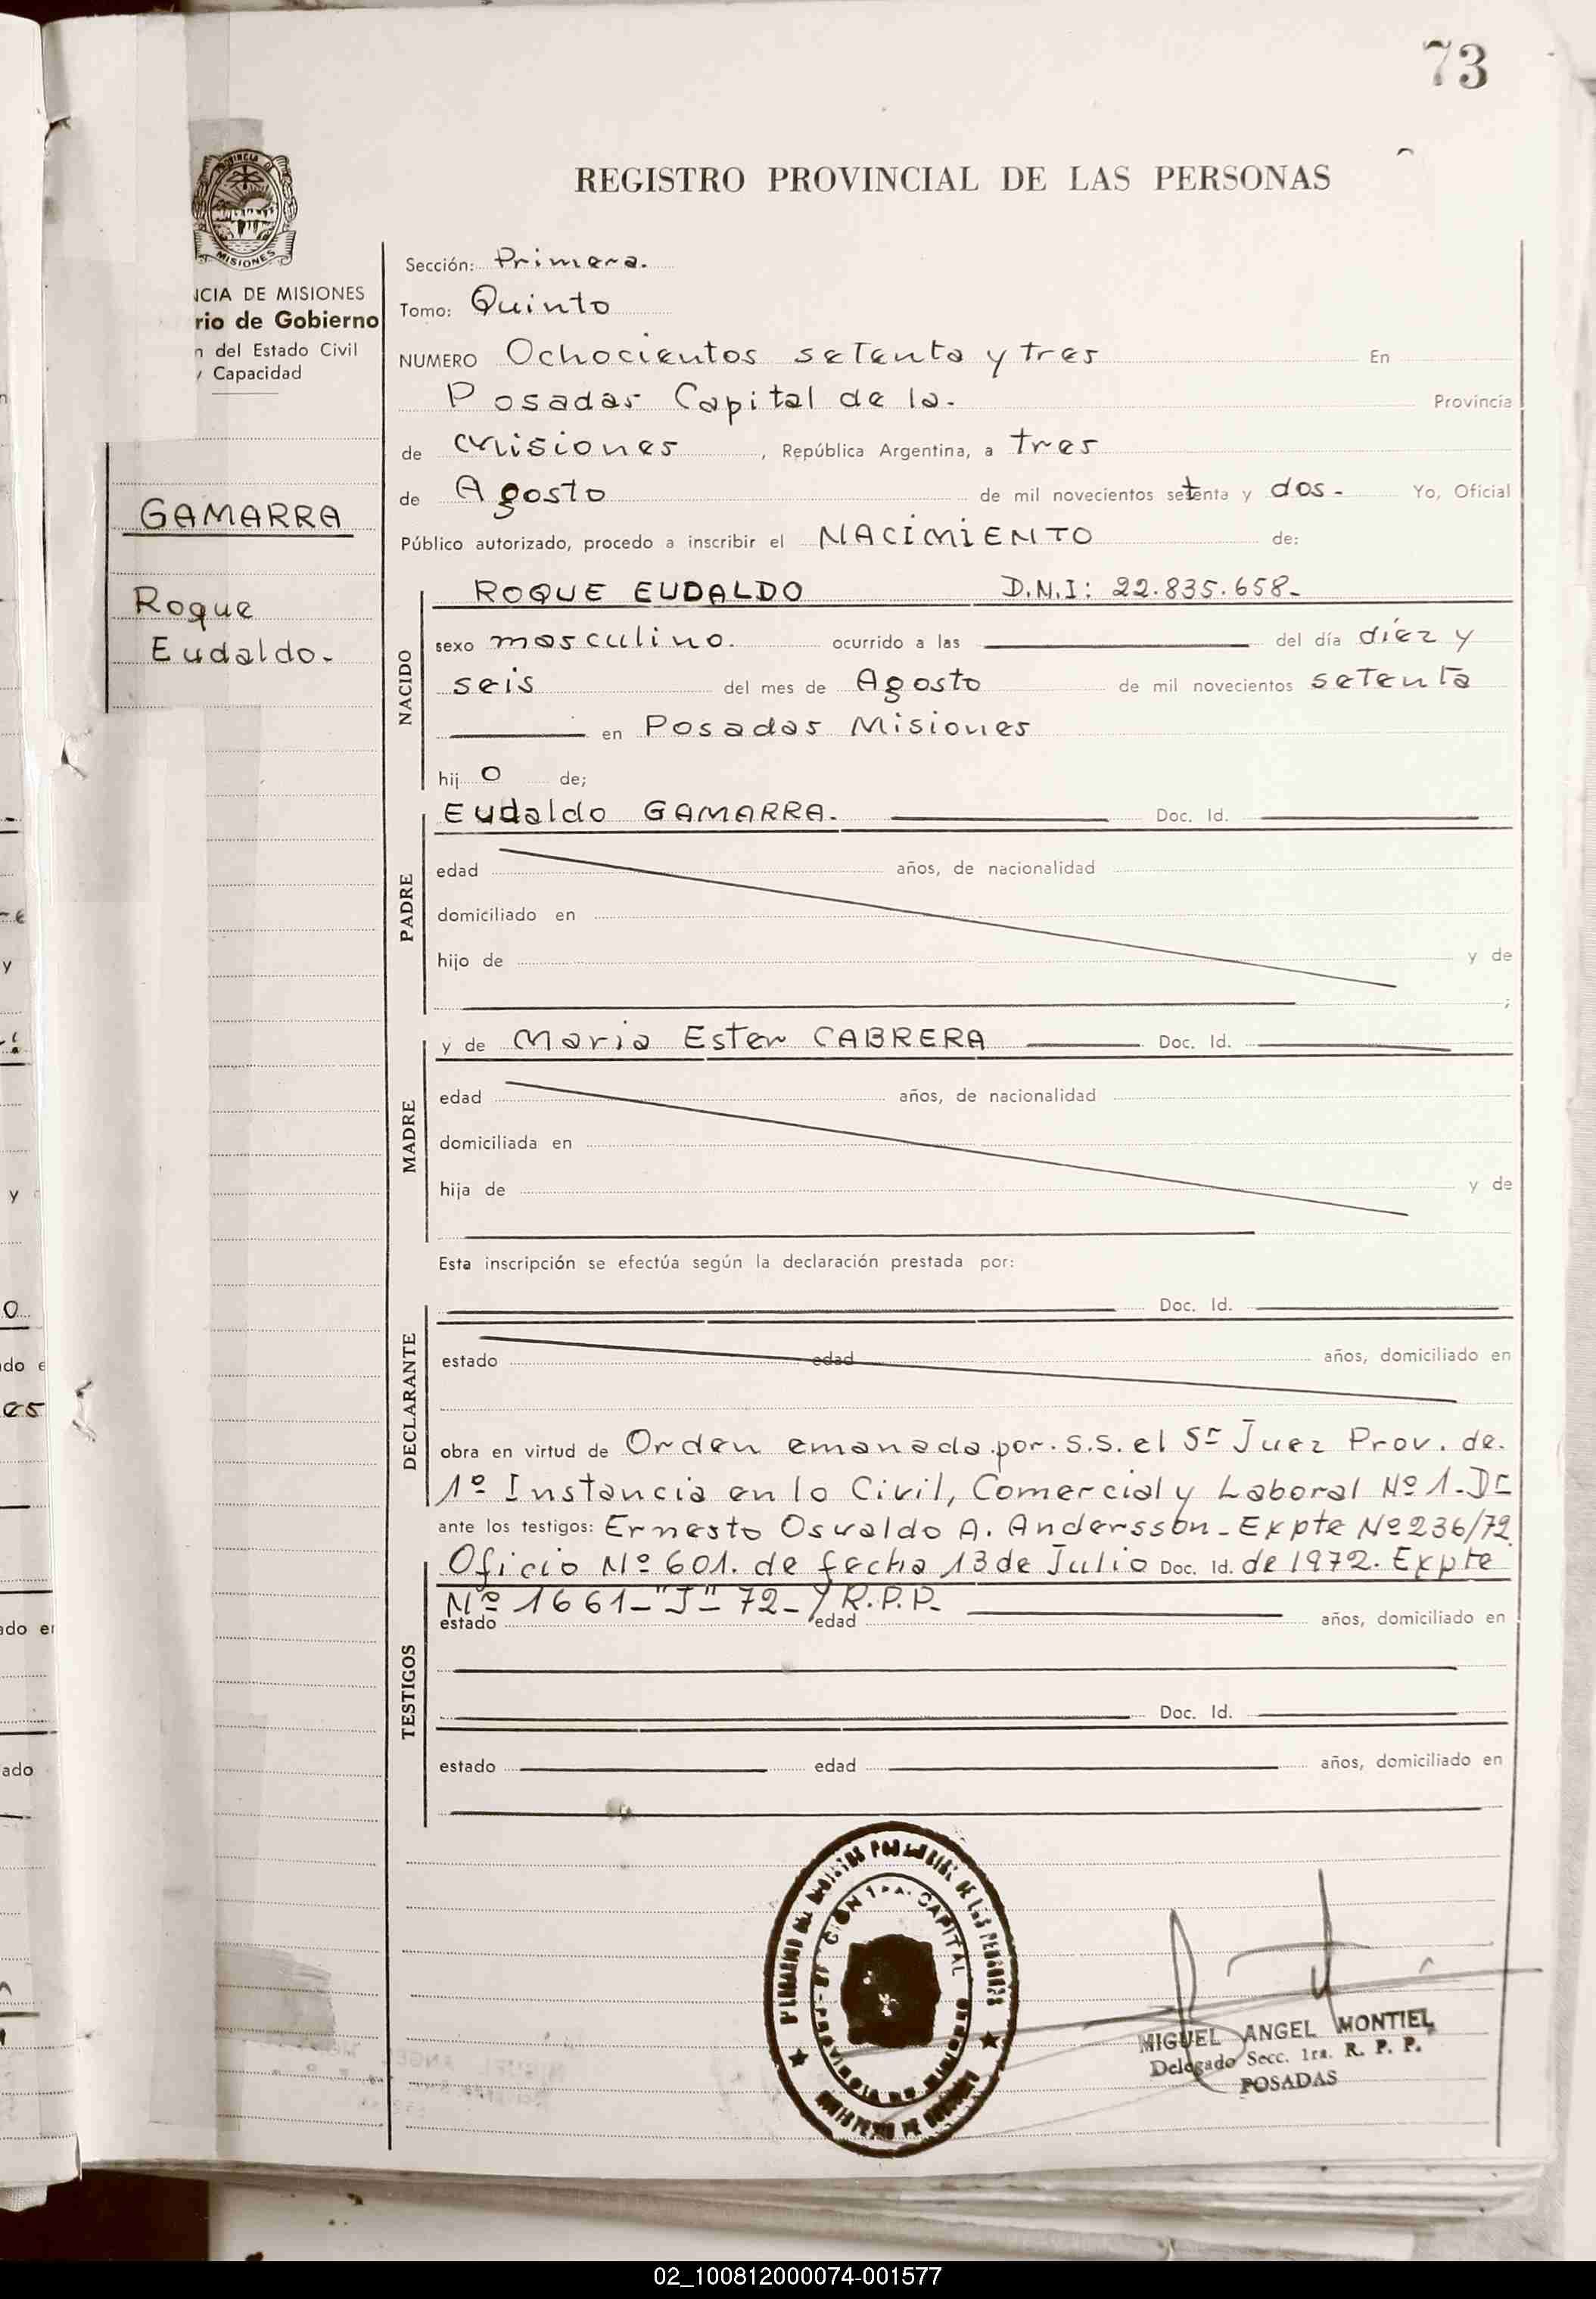 73
REGISTRO PROVINCIAL DE LAS PERSONAS
PROVINCIA DE
MISIONES
NCIA DE MISIONES
rio de Gobierno
n del Estado Civil
y Capacidad
GAMARRA
Roque
Eudaldo.
Sección: Primera.
Tomo: Quinto
NUMERO Ochocientos setenta y tres En
Posadas Capital de la. Provincia
de Misiones, República Argentina, a tres
de Agosto de mil novecientos setenta y dos. Yo, Oficial
Público autorizado, procedo a inscribir el NACIMIENTO de:
NACIDO
ROQUE EUDALDO D.N.I: 22.835.658.
sexo masculino. ocurrido a las del día diez y
seis del mes de Agosto de mil novecientos setenta
en Posadas Misiones
hij o de;
PADRE
Eudaldo GAMARRA. Doc. Id.
edad años, de nacionalidad
domiciliado en
hijo de y de
;
MADRE
y de Maria Ester CABRERA Doc. Id.
edad años, de nacionalidad
domiciliada en
hija de y de
Esta inscripción se efectúa según la declaración prestada por:
DECLARANTE
Doc. Id.
estado edad años, domiciliado en
obra en virtud de Orden emanada por S.S. el Sr Juez Prov. de.
1º Instancia en lo Civil, Comercial y Laboral Nº 1. Dr
ante los testigos: Ernesto Osvaldo A. Andersson - Expte Nº 236/72
TESTIGOS
Oficio Nº 601. de fecha 13 de Julio Doc. Id. de 1972. Expte
Nº 1661-"J"-72-Y R.P.P.
estado edad años, domiciliado en
Doc. Id.
estado edad años, domiciliado en
DE LAS PERSONAS
CIÓN 1ra. CAPITAL
MINISTERIO DE GOBIERNO
MIGUEL ANGEL MONTIEL
Delegado Secc. 1ra. R. P. P.
POSADAS
02_100812000074-001577